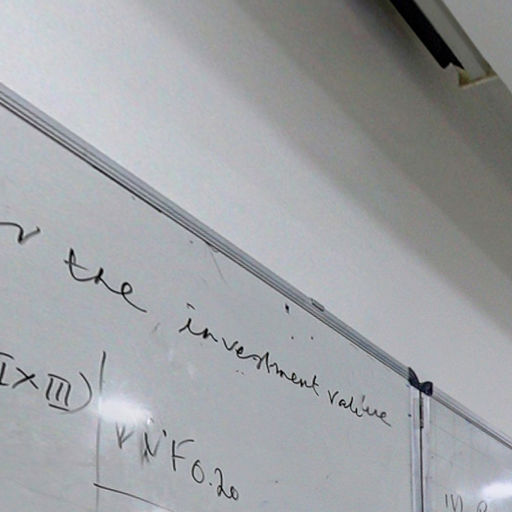 the investment value
I × III)
PVF 0.20